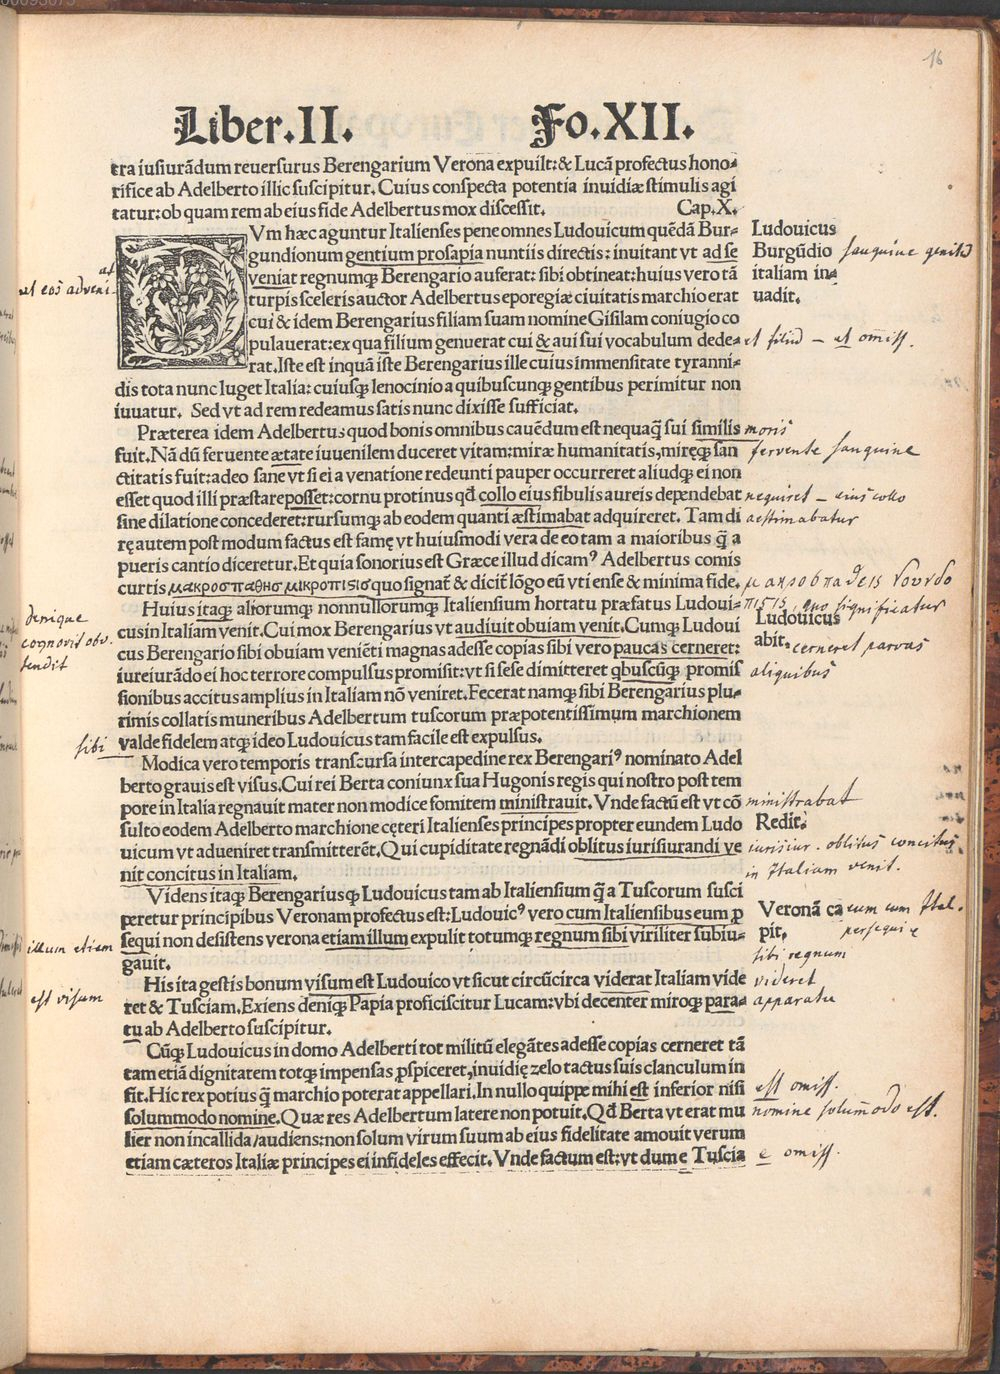 16
Liber.II. Fo.XII.
tra iusiurãdum reuersurus Berengarium Verona expulit:& Lucã profectus hono⸗
rifice ab Adelberto illic suscipitur. Cuius conspecta potentia inuidiæ stimulis agi
tatur: ob quam rem ab eius fide Adelbertus mox discessit. Cap.X.
Vm hæc aguntur Italienses pene omnes Ludouicum quẽdã Bur⸗
gundionum gentium prosapia nuntiis directis: inuitant vt ad se
veniat regnumq; Berengario auferat: sibi obtineat: huius vero tã
turpis sceleris auctor Adelbertus eporegiæ ciuitatis marchio erat
cui & idem Berengarius filiam suam nomine Gisilam coniugio co
pulauerat: ex qua filium genuerat cui & aui sui vocabulum dede⸗
rat. Iste est inquã iste Berengarius ille cuius immensitate tyranni⸗
dis tota nunc luget Italia: cuiusq; lenocinio a quibuscunq; gentibus perimitur non
iuuatur. Sed vt ad rem redeamus satis nunc dixisse sufficiat.
Præterea idem Adelbertus quod bonis omnibus cauẽdum est nequaq̃ sui similis
fuit. Nã dũ feruente ætate iuuenilem duceret vitam: miræ humanitatis, miręq; san
ctitatis fuit: adeo sane vt si ei a venatione redeunti pauper occurreret aliudq; ei non
esset quod illi præstare posset: cornu protinus qđ collo eius fibulis aureis dependebat
sine dilatione concederet: rursumq; ab eodem quanti æstimabat adquireret. Tam di
rę autem post modum factus est famę vt huiusmodi vera de eo tam a maioribus q̃ a
pueris cantio diceretur. Et quia sonorius est Græce illud dicam⁹ Adelbertus comis
curtis μακροσπαθησ μικροπισισ quo signat̃ & dicit̃ lõgo eũ vti ense & minima fide.
Huius itaq; aliorumq; nonnullorumq; Italiensium hortatu præfatus Ludoui⸗
cus in Italiam venit. Cui mox Berengarius vt audiuit obuiam venit. Cumq; Ludoui
cus Berengario sibi obuiam veniẽti magnas adesse copias sibi vero paucas cerneret:
iureiurãdo ei hoc terrore compulsus promisit: vt si sese dimitteret q̃buscũq; promis
sionibus accitus amplius in Italiam nõ veniret. Fecerat namq; sibi Berengarius plu⸗
rimis collatis muneribus Adelbertum tuscorum præpotentissimum marchionem
valde fidelem atq; ideo Ludouicus tam facile est expulsus.
Modica vero temporis transcursa intercapedine rex Berengari⁹ nominato Adel
berto grauis est visus. Cui rei Berta coniunx sua Hugonis regis qui nostro post tem
pore in Italia regnauit mater non modice fomitem ministrauit. Vnde factũ est vt cõ
sulto eodem Adelberto marchione cęteri Italienses principes propter eundem Ludo
uicum vt adueniret transmitterẽt. Qui cupiditate regnãdi oblitus iurisiurandi ve
nit concitus in Italiam.
Videns itaq; Berengarius q; Ludouicus tam ab Italiensium q̃ a Tuscorum susci
peretur principibus Veronam profectus est: Ludouic⁹ vero cum Italiensibus eum ꝓ
sequi non desistens verona etiam illum expulit totumq; regnum sibi viriliter subiu⸗
gauit.
His ita gestis bonum visum est Ludouico vt sicut circũcirca viderat Italiam vide
ret & Tusciam. Exiens deniq; Papia proficiscitur Lucam: vbi decenter miroq; para⸗
tu ab Adelberto suscipitur.
Cũq; Ludouicus in domo Adelberti tot militũ elegãtes adesse copias cerneret tã
tam etiã dignitatem totq; impensas ꝓspiceret, inuidię zelo tactus suis clanculum in
fit. Hic rex potius q̃ marchio poterat appellari. In nullo quippe mihi est inferior nisi
solummodo nomine. Quæ res Adelbertum latere non potuit. Qđ Berta vt erat mu
lier non incallida/audiens: non solum virum suum ab eius fidelitate amouit verum
etiam cæteros Italiæ principes ei infideles effecit. Vnde factum est: vt dum e Tuscia
Ludouicus
Burgũdio
italiam in⸗
uadit.
sanguine genitũ
et filiũ — et omiss.
moris
fervente sanguine
nequiret — eius collo
aestimabatur
πισις, quo significatur
Ludouicus
abit.
cerneret parvas
aliquibus
ministrabat
Redit.
iurisiur. oblitus concitus
in Italiam venit.
Veronã ca
pit.
eum cum Ital.
persequi
sibi regnum
videret
apparatu
est omiss.
nomine solummodo est.
e omiss.
denique
cognovit obv.
tendit
sibi
illum etiam
est visum